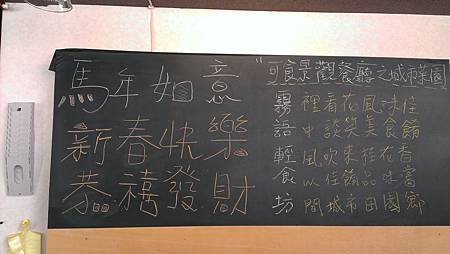 馬年如意
新春快樂
恭禧發財
"可食景觀餐廳之城市菜園
霧裡看花風味佳
語中談笑美食
輕風吹來桂花香
食以佳餚品味嘗
坊間城市田園鄉